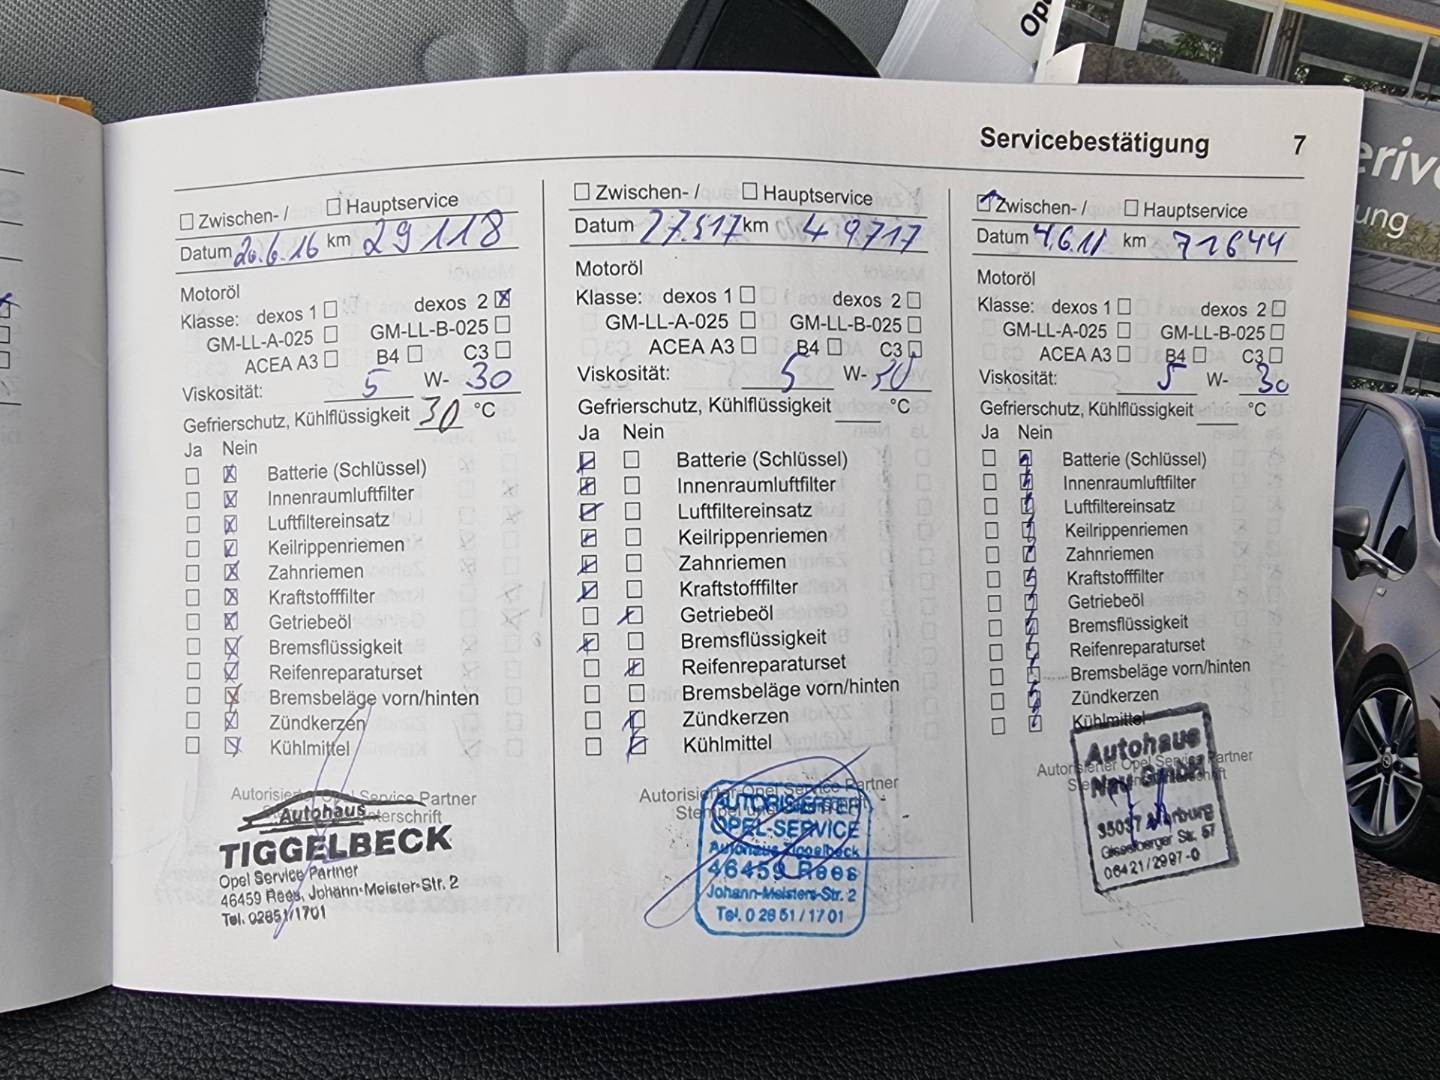 Servicebestätigung 7
Zwischen- / Hauptservice
Datum 20.6.16 km 29118
Motoröl
Klasse: dexos 1 dexos 2
GM-LL-A-025 GM-LL-B-025
ACEA A3 B4 C3
Viskosität: 5 W- 30
Gefrierschutz, Kühlflüssigkeit 30 °C
Ja Nein
Batterie (Schlüssel)
Innenraumluftfilter
Luftfiltereinsatz
Keilrippenriemen
Zahnriemen
Kraftstofffilter
Getriebeöl
Bremsflüssigkeit
Reifenreparaturset
Bremsbeläge vorn/hinten
Zündkerzen
Kühlmittel
Autorisierter Opel Service Partner
Autohaus
TIGGELBECK
Opel Service Partner
46459 Rees, Johann-Meister-Str. 2
Tel. 02851/1701
Zwischen- / Hauptservice
Datum 27.517 km 49717
Motoröl
Klasse: dexos 1 dexos 2
GM-LL-A-025 GM-LL-B-025
ACEA A3 B4 C3
Viskosität: 5 W- 30
Gefrierschutz, Kühlflüssigkeit °C
Ja Nein
Batterie (Schlüssel)
Innenraumluftfilter
Luftfiltereinsatz
Keilrippenriemen
Zahnriemen
Kraftstofffilter
Getriebeöl
Bremsflüssigkeit
Reifenreparaturset
Bremsbeläge vorn/hinten
Zündkerzen
Kühlmittel
Autorisierter Opel Service Partner
Stempel und
AUTORISIERTER
OPEL-SERVICE
Autohaus Tiggelbeck
46459 Rees
Johann-Meisters-Str. 2
Tel. 0 28 51 / 17 01
Zwischen- / Hauptservice
Datum km 71644
Motoröl
Klasse: dexos 1 dexos 2
GM-LL-A-025 GM-LL-B-025
ACEA A3 B4 C3
Viskosität: 5 W- 30
Gefrierschutz, Kühlflüssigkeit °C
Ja Nein
Batterie (Schlüssel)
Innenraumluftfilter
Luftfiltereinsatz
Keilrippenriemen
Zahnriemen
Kraftstofffilter
Getriebeöl
Bremsflüssigkeit
Reifenreparaturset
Bremsbeläge vorn/hinten
Zündkerzen
Kühlmittel
Autorisierter Opel Service Partner
Autohaus
35037 Marburg
Gisselberger Str. 57
06421/2997-0